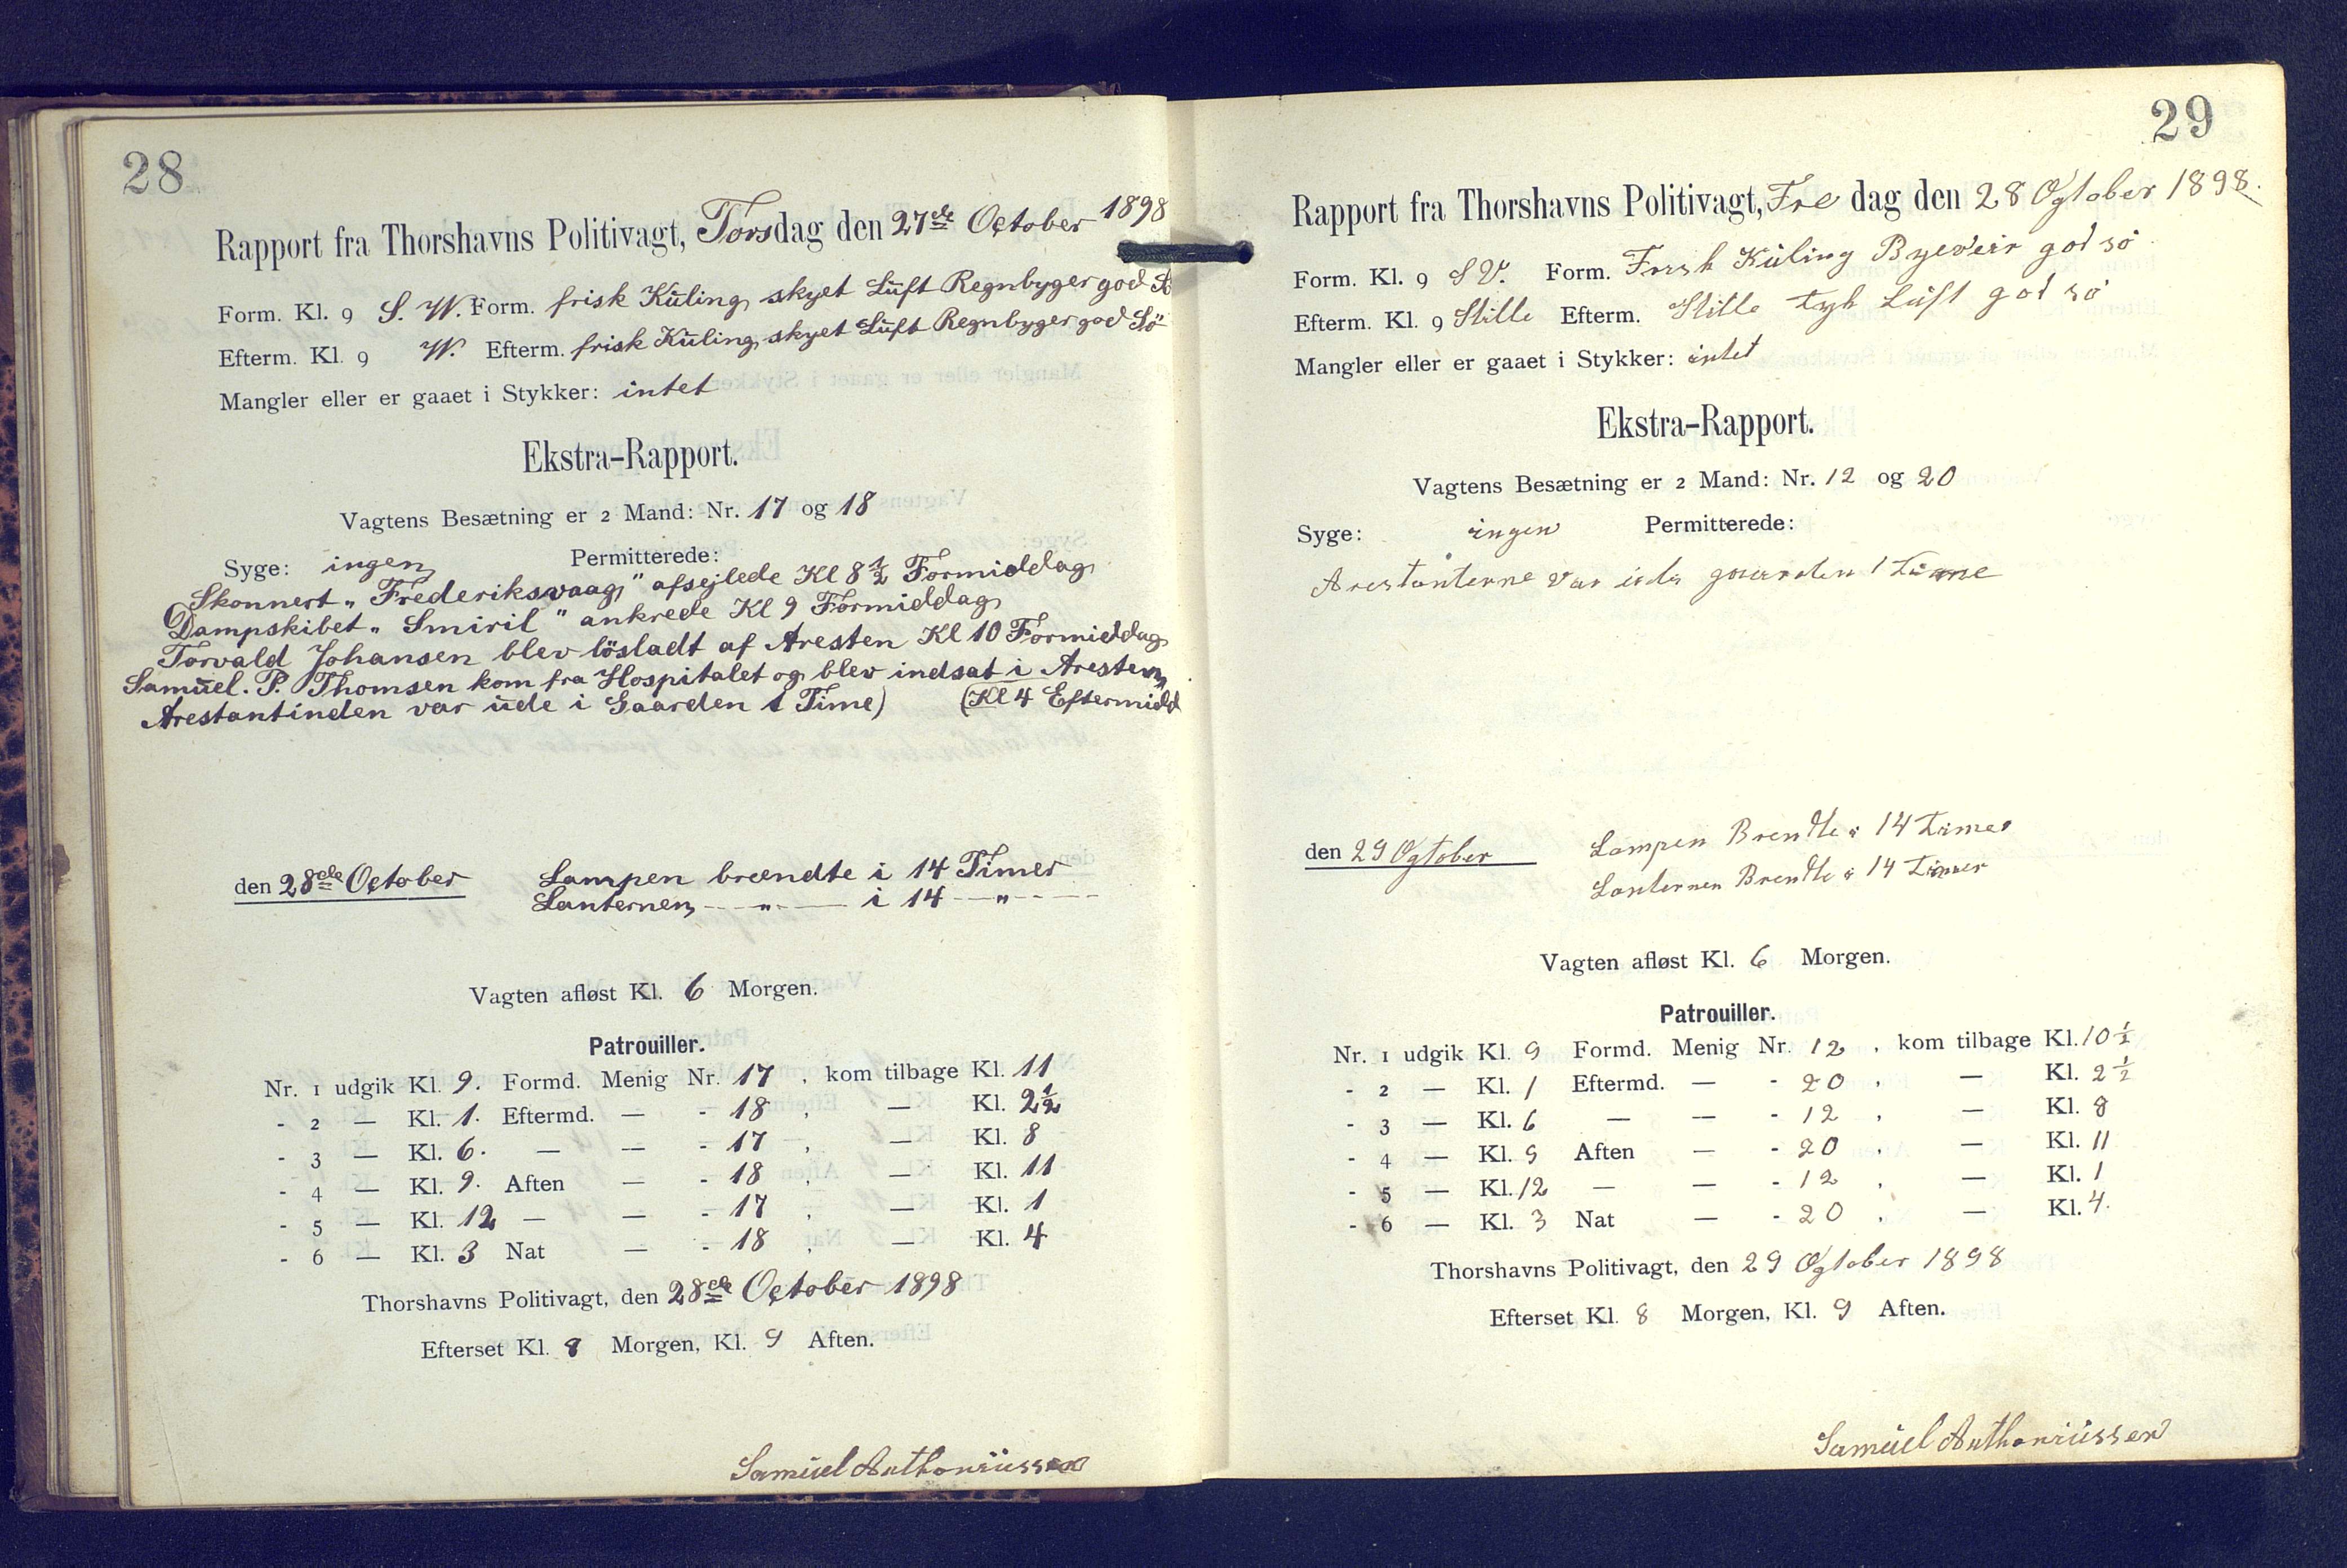 28
Rapport fra Thorshavns Politivagt, Torsdag den 27de October 1898
Form. Kl. 9 S. W. Form. frisk Kúling, skyet Lúft Regnbyger god S
Efterm. Kl. 9 W. Efterm. frisk Kúling, skyet Lúft Regnbyger god Sö
Mangler eller er gaaet i Stykker: intet
Ekstra-Rapport.
Vagtens Besætning er 2 Mand: Nr. 17 og 18
Syge: ingen Permitterede:
Skonnert „Frederiksvaag" afsejlede Kl 8½ Formiddag
Dampskibet „Smiril" ankrede Kl 9 Formiddag
Torvald Johansen blev lösladt af Aresten Kl 10 Formiddag
Samúel. P. Thomsen kom fra Hospitalet og blev indsat i Aresten
Arestantinden var úde i Gaarden 1 Time) (Kl 4 Eftermidd
den 28de October Lampen brændte i 14 Timer
Lanternen — „ — i 14 — „ —
Vagten afløst Kl. 6 Morgen.
Patrouiller.
Nr. 1 udgik Kl. 9. Formd. Menig Nr. 17, kom tilbage Kl. 11
- 2 — Kl. 1. Eftermd. — - 18, — Kl. 2½
- 3 — Kl. 6. — — - 17, — Kl. 8
- 4 — Kl. 9. Aften — - 18, — Kl. 11
- 5 — Kl. 12 — — - 17, — Kl. 1
- 6 — Kl. 3 Nat — - 18, — Kl. 4
Thorshavns Politivagt, den 28de October 1898
Efterset Kl. 8 Morgen, Kl. 9 Aften.
Samúel Anthoniússen
29
Rapport fra Thorshavns Politivagt, Fre dag den 28 Ogtober 1898.
Form. Kl. 9 SV. Form. Frssk Kúling Byeveir god sö
Efterm. Kl. 9 Stille Efterm. Stille tyk Lúft god sö
Mangler eller er gaaet i Stykker: intet
Ekstra-Rapport.
Vagtens Besætning er 2 Mand: Nr. 12 og 20
Syge: ingen Permitterede:
Arestanterne var gaarden 1 Time
den 29 Ogtober Lampen Brendte i 14 Timer
Lanternen Brendte i 14 Timer
Vagten afløst Kl. 6 Morgen.
Patrouiller.
Nr. 1 udgik Kl. 9 Formd. Menig Nr. 12, kom tilbage Kl. 10½
- 2 — Kl. 1 Eftermd. — - 20, — Kl. 2½
- 3 — Kl. 6 — — - 12, — Kl. 8
- 4 — Kl. 9 Aften — - 20, — Kl. 11
- 5 — Kl. 12 — — - 12, — Kl. 1
- 6 — Kl. 3 Nat — - 20, — Kl. 4.
Thorshavns Politivagt, den 29 Ogtober 1898
Efterset Kl. 8 Morgen, Kl. 9 Aften.
Samúel Anthoniússen